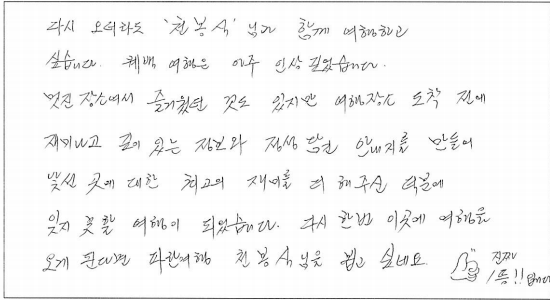 다시 오더라도 '천봉석' 님과 함께 여행하고
싶습니다. 퀘백 여행은 아주 인상 깊었습니다.
멋진 장소에서 즐거웠던 것도 있지만 여행장소 도착 전에
재미나고 깊이 있는 정보와 정성 담긴 안내지를 만들어
낯선 곳에 대한 최고의 재미를 더 해주신 덕분에
잊지 못할 여행이 되었습니다. 다시 한번 이곳에 여행을
오게 된다면 파란여행 천봉석 님을 뵙고 싶네요
진짜
1등!! 입니다